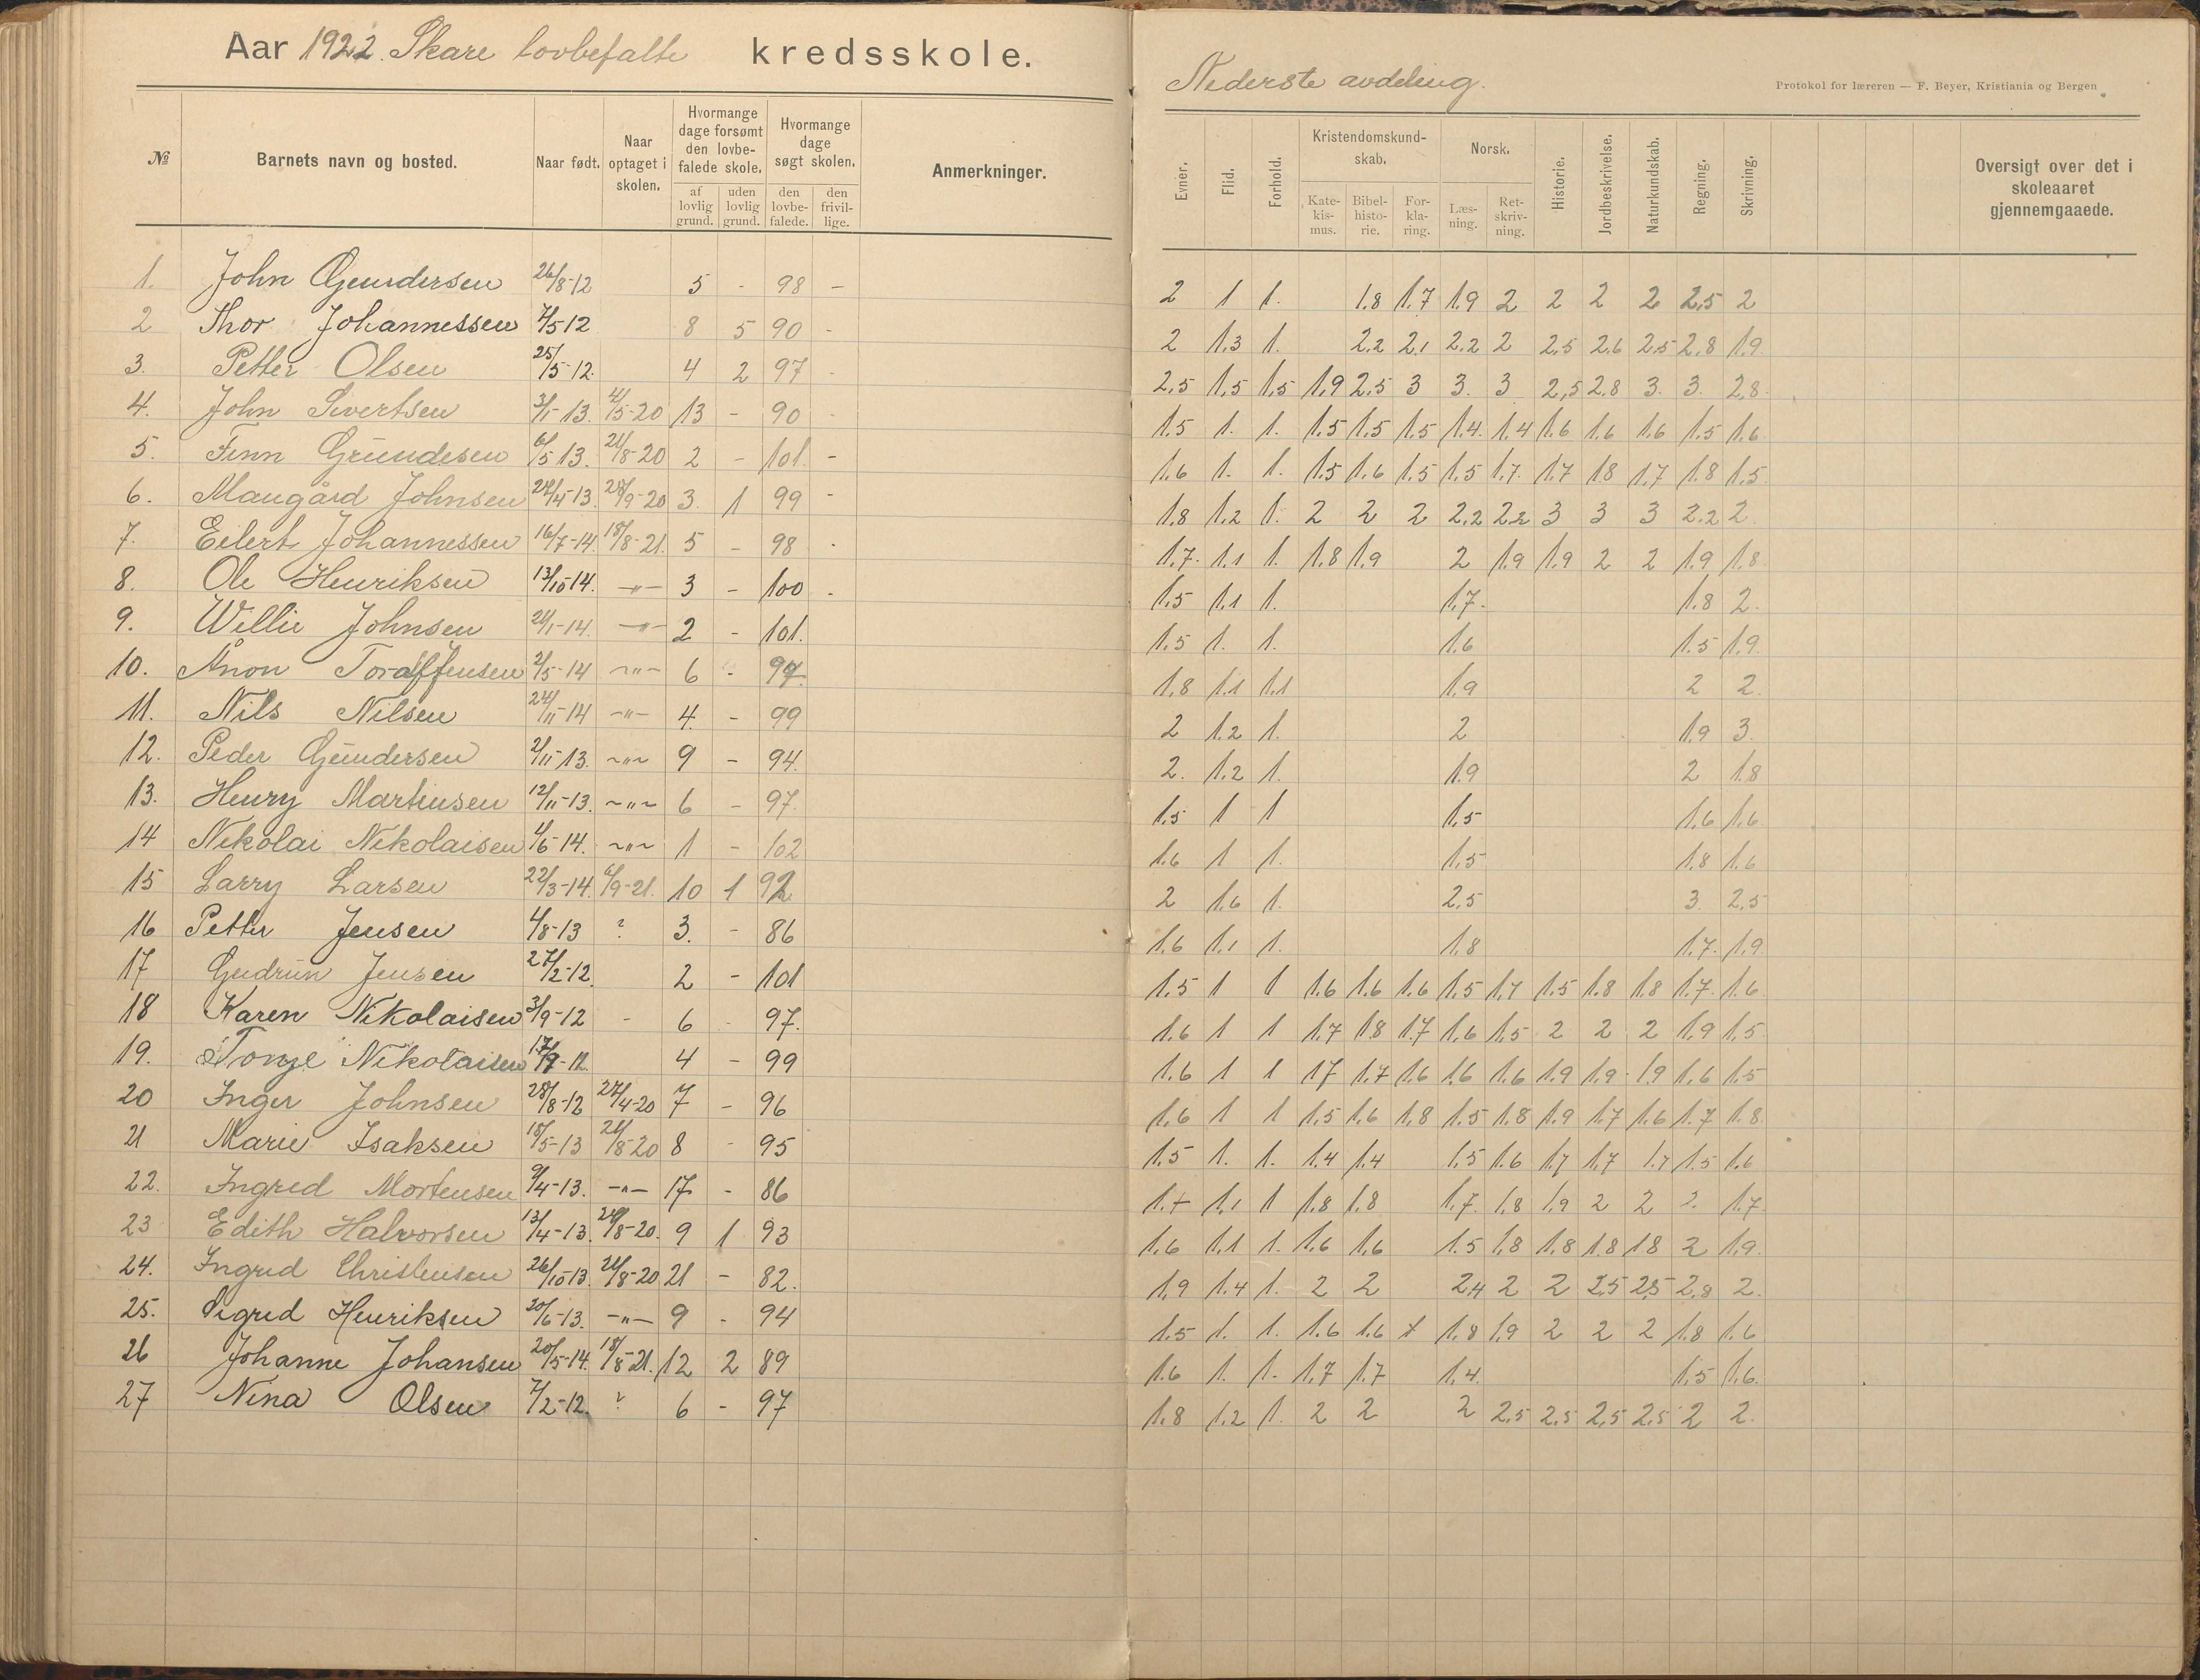 Aar 1922. Skare lovbefalte kredsskole.
Nederste avdeling.
Protokol for læreren — F. Beyer, Kristiania og Bergen
№ Barnets navn og bosted. Naar født. Naar optaget i skolen. Hvormange dage forsømt den lovbefalede skole. af lovlig grund. uden lovlig grund. Hvormange dage søgt skolen. den lovbefalede. den frivillige. Anmerkninger.
Evner. Flid. Forhold. Kristendomskundskab. Katekismus. Bibelhistorie. Forklaring. Norsk. Læsning. Retskrivning. Historie. Jordbeskrivelse. Naturkundskab. Regning. Skrivning. Oversigt over det i skoleaaret gjennemgaaede.
1. John Gundersen 26/8-12 5 - 98 - 2 1 1. 1.8 1.7 1.9 2 2 2 2 2,5 2
2 Thor Johannessen 7/5 12 8 5 90 - 2 1.3 1. 2.2 2,1 2.2 2 2,5 2,6 2,5 2,8 1,9
3. Petter Olsen 25/5-12. 4 2 97 - 2,5 1,5 1,5 1,9 2,5 3 3. 3 2,5 2,8 3. 3. 2,8
4. John Sivertsen 3/1-13. 4/5-20 13 - 90 - 1.5 1. 1. 1.5 1.5 1.5 1.4. 1.4 1.6 1.6 1.6 1.5 1.6
5. Finn Gundesen 6/5 13. 21/8-20 2 - 101. - 1.6 1. 1. 1.5 1.6 1.5 1.5 1.7. 1.7 1.8 1.7 1.8 1.5
6. Maugård Johnsen 22/4-13. 28/9-20 3. 1 99 - 1.8 1.2 1. 2 2 2 2,2 2,2 3 3 3 2.2 2.
7. Eilert Johannessen 16/7-14. 18/8-21. 5 - 98 - 1.7. 1.1 1. 1.8 1.9 2 1.9 1.9 2 2 1.9 1.8
8. Ole Henriksen 13/10 14. -"- 3 - 100 - 1.5 1.1 1. 1.7. 1.8 2.
9. Willie Johnsen 21/1-14. -"- 2 - 101. 1.5 1. 1. 1.6 1.5 1.9
10. Ånon Toralfjensen 2/5-14 -"- 6 - 97. 1.8 1.1 1.1 1.9 2 2.
11. Nils Nilsen 24/11-14 -"- 4. - 99 2 1.2 1. 2 1.9 3.
12. Peder Gundersen 2/11-13. -"- 9 - 94. 2. 1.2 1. 1.9 2 1.8
13. Henry Martinsen 12/11-13. -"- 6 - 97. 1.5 1 1 1.5 1.6 1.6
14 Nikolai Nikolaisen 4/6-14. -"- 1 - 102 1.6 1 1. 1.5 1.8 1.6
15 Larry Larsen 22/3-14. 6/9-21. 10 1 92 2 1.6 1. 2.5 3. 2.5
16 Petter Jensen 4/8-13 ? 3. - 86 1.6 1.1 1. 1.8 1.7. 1.9
17 Gudrun Jensen 27/2-12. 2 - 101 1.5 1 1 1.6 1.6 1.6 1.5 1.7 1.5 1.8 1.8 1.7. 1.6
18 Karen Nikolaisen 3/9-12 - 6 - 97. 1.6 1 1 1.7 1.8 1.7 1.6 1.5 2 2 2 1.9 1.5
19. Tonje Nikolaisen 17/9-12. 4 - 99 1.6 1 1 1.7 1.7 1.6 1.6 1.6 1.9 1.9 1.9 1.6 1.5
20 Inger Johnsen 28/8-12 27/4-20 7 - 96 1.6 1 1 1.5 1.6 1.8 1.5 1.8 1.9 1.7 1.6 1.7 1.8
21 Marie Isaksen 18/5-13 21/8 20 8 - 95 1.5 1. 1. 1.4 1.4 1.5 1.6 1.7 1.7 1.7 1.5 1.6
22. Ingred Mortensen 9/4-13. -"- 17 - 86 1.7 1.1 1 1.8 1.8 1.7. 1.8 1.9 2 2 2. 1.7
23 Edith Halvorsen 13/4-13. 24/8-20. 9 1 93 1.6 1.1 1. 1.6 1.6 1.5 1.8 1.8 1.8 1.8 2 1.9.
24. Ingrid Christensen 26/10 13. 21/8-20 21 - 82. 1.9 1.4 1. 2 2 2.4 2 2 2.5 2.5 2,8 2.
25. Sigrid Henriksen 20/6-13. -"- 9 - 94 1.5 1. 1. 1.6 1.6 1.8 1.9 2 2 2 1.8 1.6
26 Johanne Johansen 20/5-14. 18/8-21. 12 2 89 1.6 1. 1. 1.7 1.7 1.4. 1.5 1.6.
27 Nina Olsen 7/2-12. ? 6 - 97 1.8 1.2 1. 2 2 2 2,5 2,5 2,5 2,5 2 2.